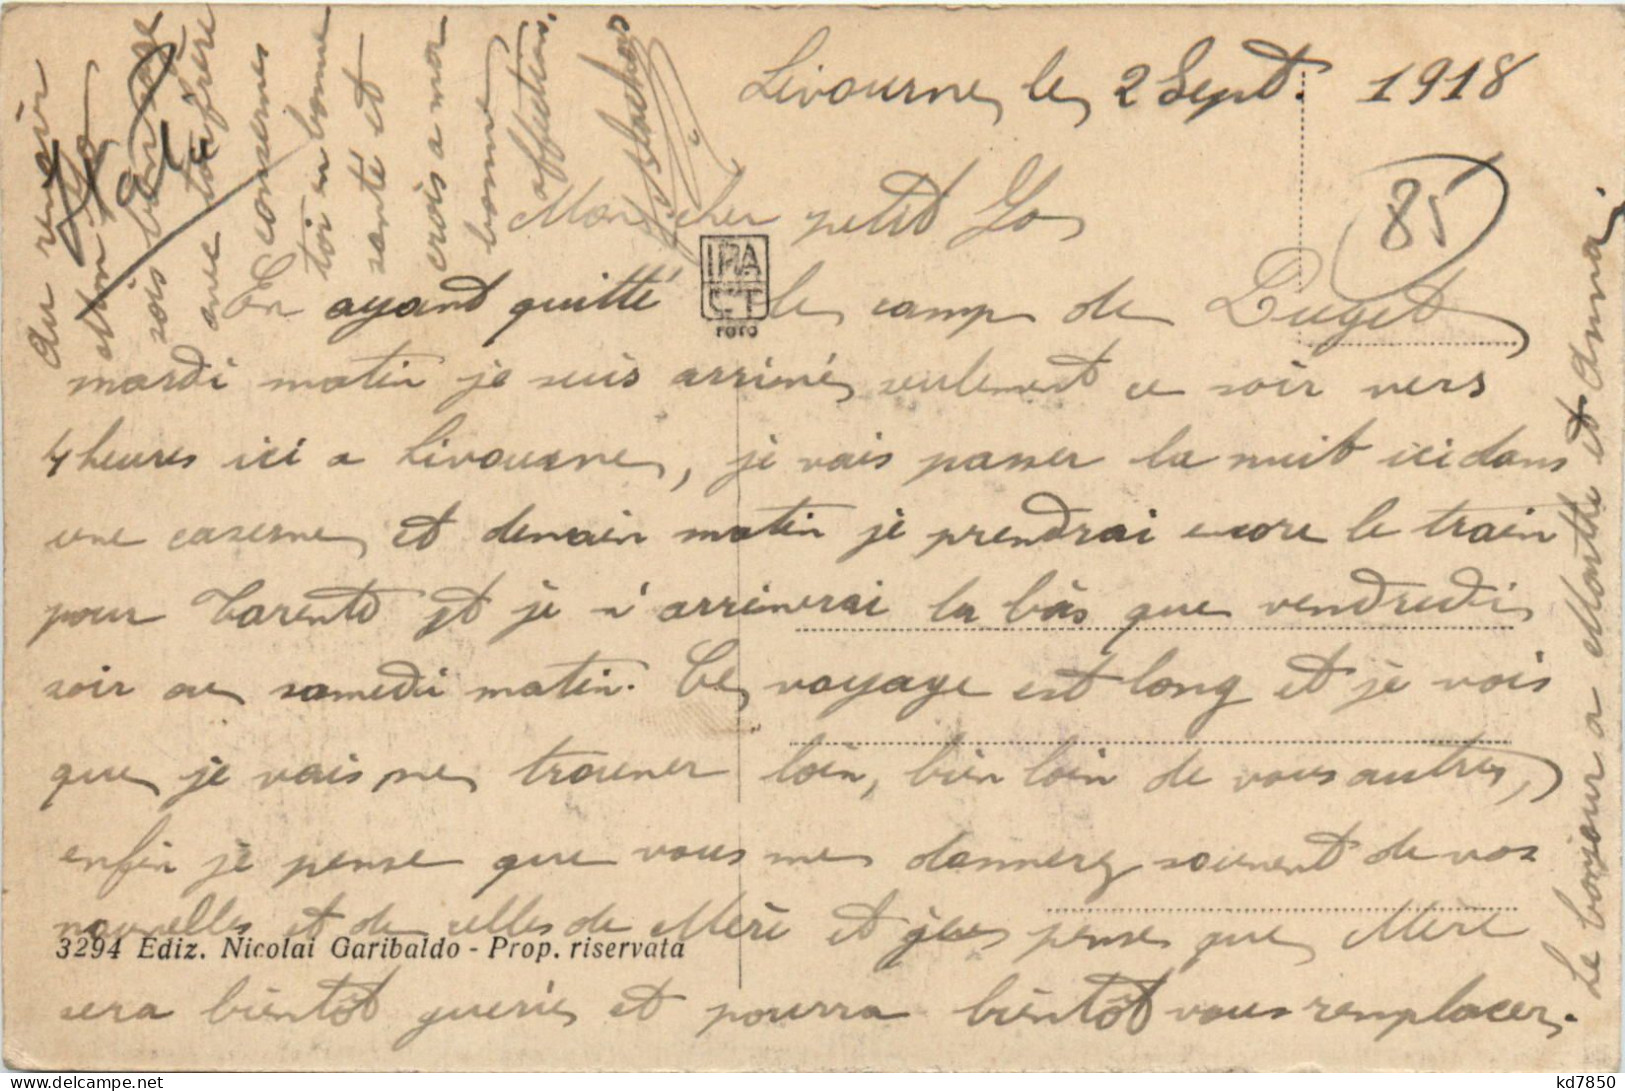 Livourne, le, 2 Sept. 1918
85
Mon cher petit Jo,
En ayant quitté le camp de Puget
mardi matin je suis arrivé, seulement ce soir vers
4 heures ici a Livourne, je vais passer la nuit ici dans
une caserne, et demain matin je prendrai encore le train
pour Tarente et je n'arriverai la bàs que vendredi
soir ou samedi matin. Ce, voyage est long et je vois
que je vais me trouver loin, bien loin de vous autres,
enfin je pense que vous me donnerez souvent de vos
nouvelles et de celles de Mère et je pense que Mère
sera bientôt guerie, et pourra bientôt vous remplacer.
Au revoir
Mon Jo
sois bon
avec ta frère
conserves
toi en bonne
santé et
crois a ma
bonne
affection.
Le bonjour a Marthe et Anna.
IPA CT
FOTO
3294 Ediz. Nicolai Garibaldo - Prop. riservata
kd7850